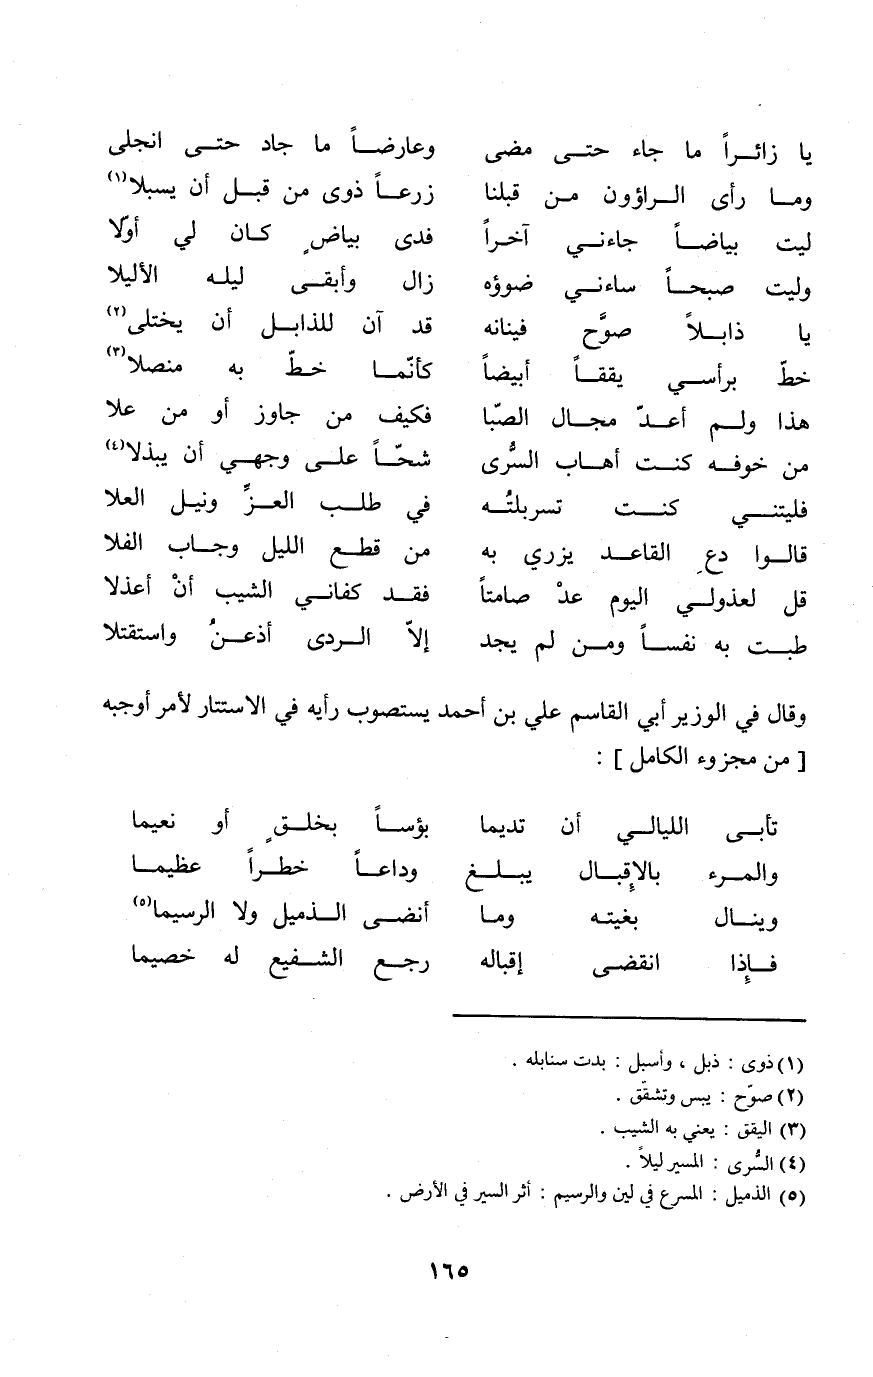 يا زائراً ما جاء حتى مضى وعارضاً ما جاد حتى انجلى
وما رأى الراؤون من قبلنا زرعاً ذوى من قبل أن يسبلا(١)
ليت بياضاً جاءني آخراً فدى بياضٍ كان لي أوّلا
وليت صبحاً ساءني ضوؤه زال وأبقى ليله الأليلا
يا ذابلاً صوَّح فينانه قد آن للذابل أن يختلى(٢)
خطّ برأسي يققاً أبيضاً كأنّما خطّ به منصلا(٣)
هذا ولم أعدّ مجال الصّبا فكيف من جاوز أو من علا
من خوفه كنت أهاب السُّرى شحّاً على وجهي أن يبذلا(٤)
فليتني كنت تسربلتُه في طلب العزِّ ونيل العلا
قالوا دعِ القاعد يزري به من قطع الليل وجاب الفلا
قل لعذولي اليوم عدْ صامتاً فقد كفاني الشيب أنْ أعذلا
طبت به نفساً ومن لم يجد إلاّ الردى أذعنُ واستقتلا
وقال في الوزير أبي القاسم علي بن أحمد يستصوب رأيه في الاستتار لأمر أوجبه
[ من مجزوء الكامل ] :
تأبى الليالي أن تديما بؤساً بخلقٍ أو نعيما
والمرء بالإقبال يبلغ وداعاً خطراً عظيما
وينال بغيته وما أنضى الذميل ولا الرسيما(٥)
فإذا انقضى إقباله رجع الشفيع له خصيما
(١) ذوى : ذبل ، وأسبل : بدت سنابله .
(٢) صوّح : يبس وتشقّق .
(٣) اليقق : يعني به الشيب .
(٤) السُّرى : المسير ليلاً .
(٥) الذميل : المسرع في لين والرسيم : أثر السير في الأرض .
١٦٥